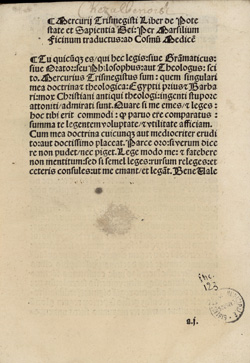 ¶ Mercurij Trismegisti Liber de Pote
state et Sapientia Dei: Per Marsilium
Ficinum traductus: ad Cosmũ Medicẽ
¶ Tu quicũqʒ es/qui hec legis: siue Grãmaticus:
siue Orator: seu Philosophus: aut Theologus: sci
to. Mercurius Trismegistus sum: quem singulari
mea doctrina & theologica: Egyptij prius & Barba
ri: mox Christiani antiqui theologi: ingenti stupore
attoniti/admirati sunt. Quare si me emes/& leges:
hoc tibi erit commodi: qp paruo ere comparatus:
summa te legentem voluptate/& vtilitate afficiam.
Cum mea doctrina cuicunqʒ aut mediocriter erudi
to: aut doctissimo placeat. Parce oro: si verum dice
re non pudet/nec piget. Lege modo me: & fatebere
non mentitum: sed si semel leges: rursum releges: et
ceteris consules: ut me emant/et legãt. Bene Uale
Inc.
123
a.j.